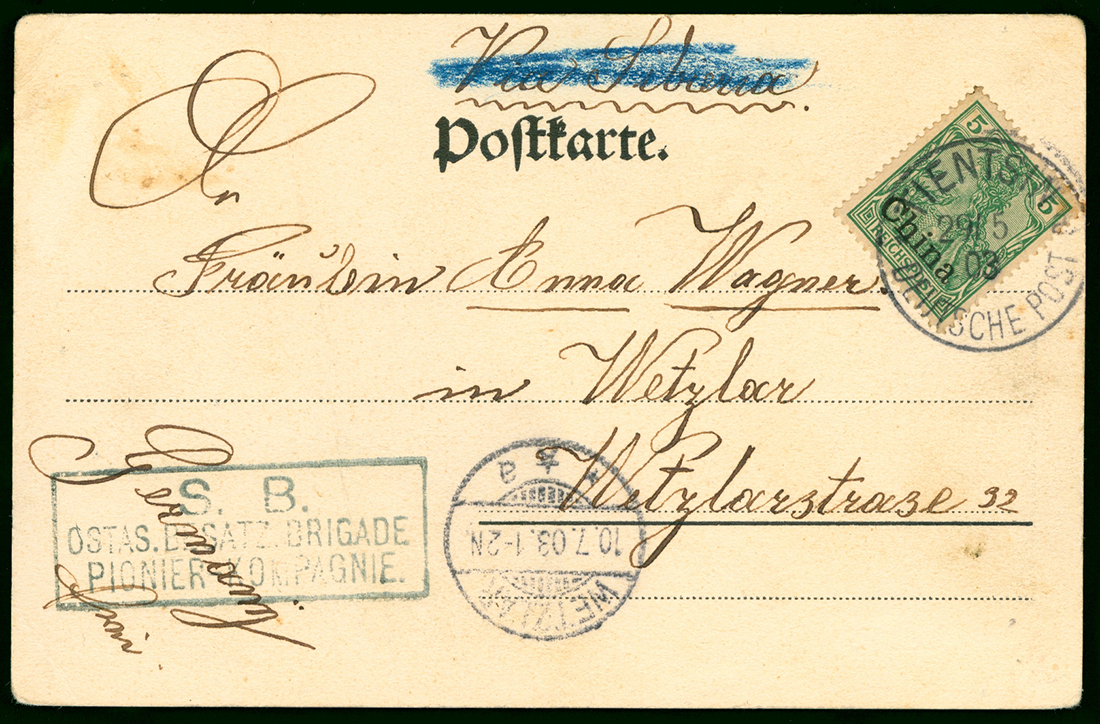 Via Siberia.
Postkarte.
An
Fräulein Anna Wagner.
in Wetzlar
Wetzlarstrase 32
5 5
China
REICHSPOST
TIENTSIN
29 5
03
DEUTSCHE POST
S. B.
OSTAS. BESATZ. BRIGADE
PIONIER-KOMPAGNIE.
Germany
WETZLAR
10.7.03.1-2N